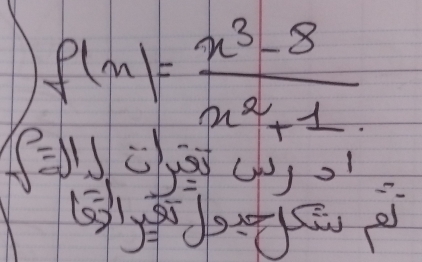 f(x) = \frac{x^3 - 8}{x^2 + 1}.
ادرس تغيرات الدالة f
ثم شكل جدول تغيراتها